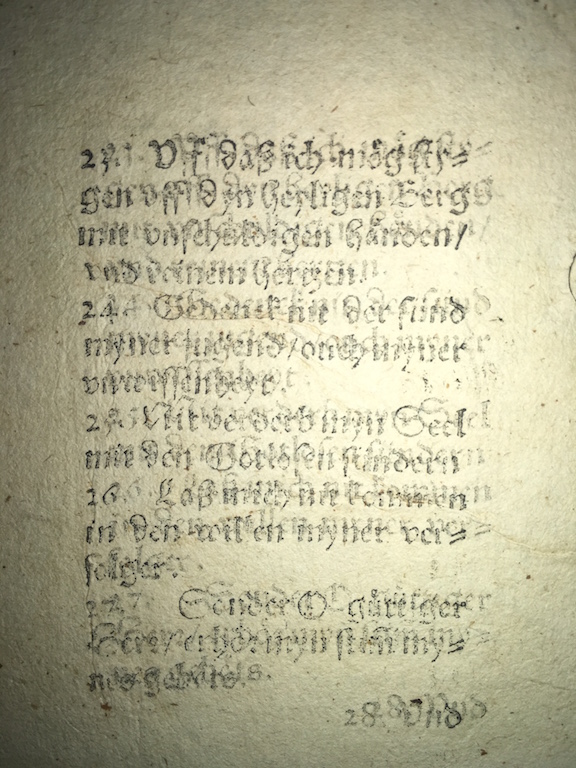 23. Vff daß ich mög sty⸗
gen vff dyn heyligen Bergs
mit vnschuldigen händen/
vnd reinem hertzen.
24. Gedenck nit der sünd
myner jugend/ouch myner
vnwissenheyt.
25. Nit verderb myn Seel
mit den Gotlosen sündern
26. Laß mich nit kommen
in den willen myner ver⸗
folger.
27. Sonder O gütiger
Herr/erhör myn stim my⸗
nes gebets.
28. Vnd